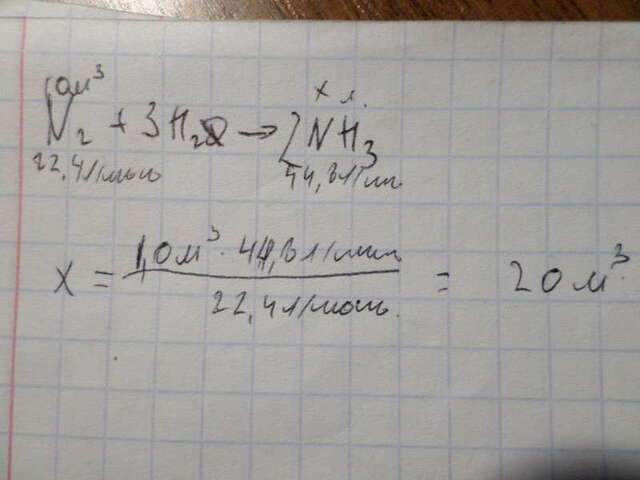 10м³ х л.
N₂ + 3H₂ → 2NH₃
22,4л/моль 44,8л/мол
X = 10м³ · 44,8л/мол / 22,4л/моль. = 20м³